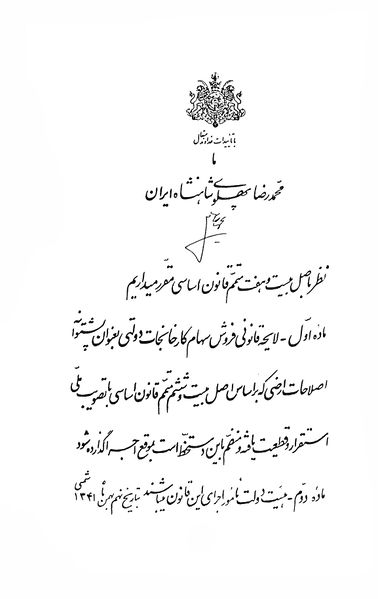 با تأییدات خداوند متعال
ما
محمدرضا پهلوی شاهنشاه ایران
نظر باصل بیست و هفت متمم قانون اساسی مقرر میداریم
ماده اول - لایحه قانونی فروش سهام کارخانجات دولتی بعنوان پشتوانه
اصلاحات ارضی که براساس اصل بیست و ششم متمم قانون اساسی با تصویب ملی
استقرار و قطعیت یافته و منضم باین دستخط است بموقع اجرا گذارده شود
ماده دوم - هیئت دولت مأمور اجرای این قانون میباشند بتاریخ نهم بهمن ماه ۱۳۴۱ شمسی